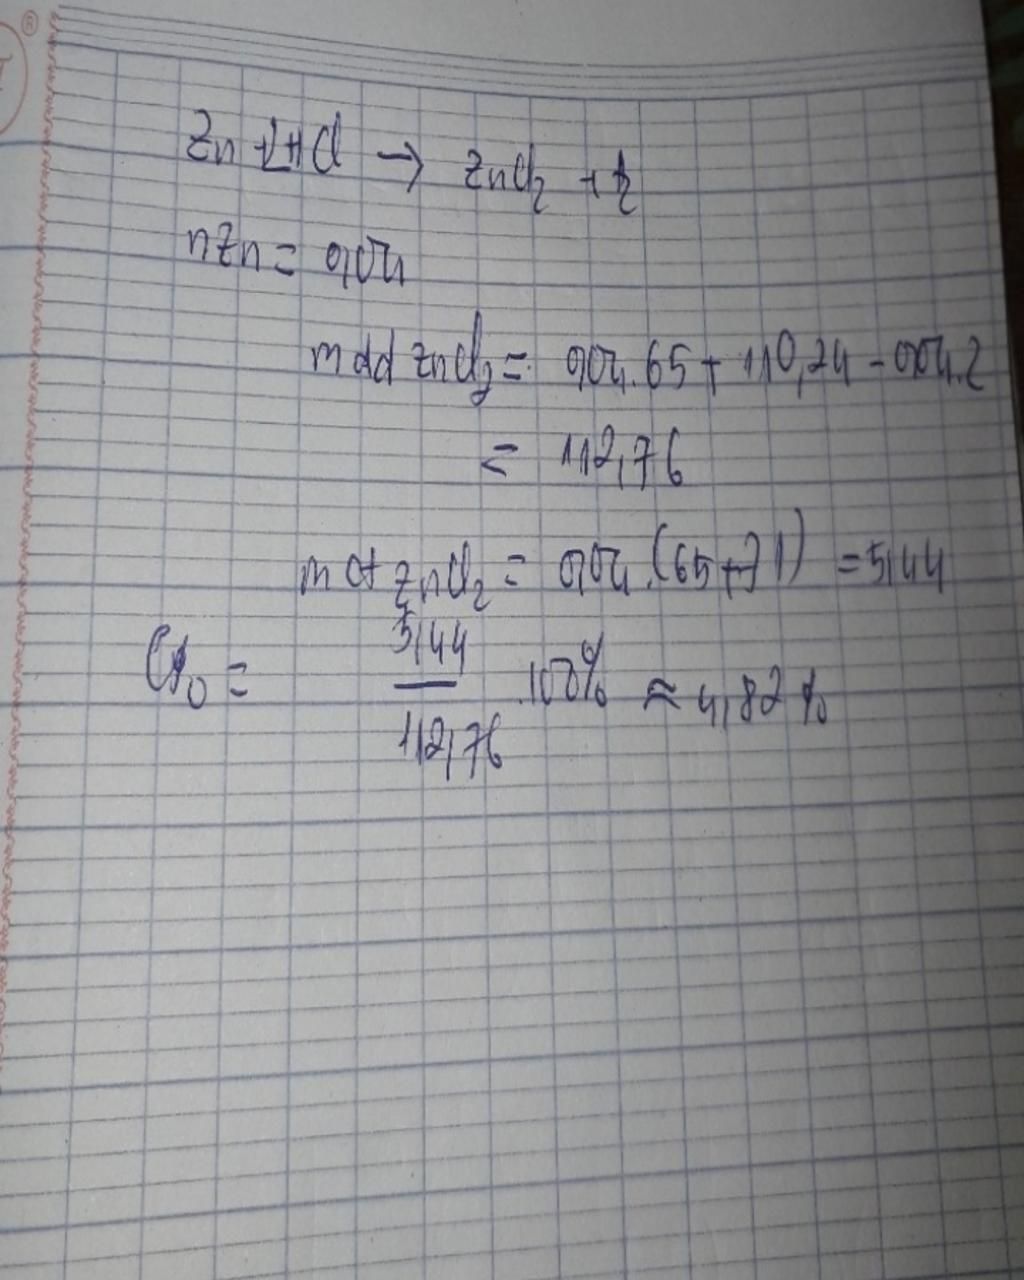 Zn + 2HCl → ZnCl2 + H2
nZn = 0,04
mdd ZnCl2 = 0,04.65 + 110,24 - 0,04.2
= 112,76
mct ZnCl2 = 0,04.(65+71) = 5,44
C% = 5,44 / 112,76 .100% ≈ 4,82%